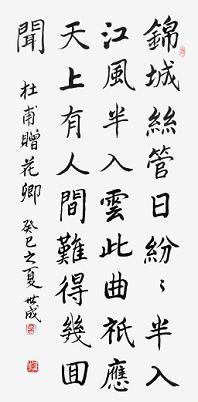 錦城絲管日紛〻半入
江風半入雲此曲祇應
天上有人間難得幾回
聞
杜甫贈花卿
癸巳之夏 世成